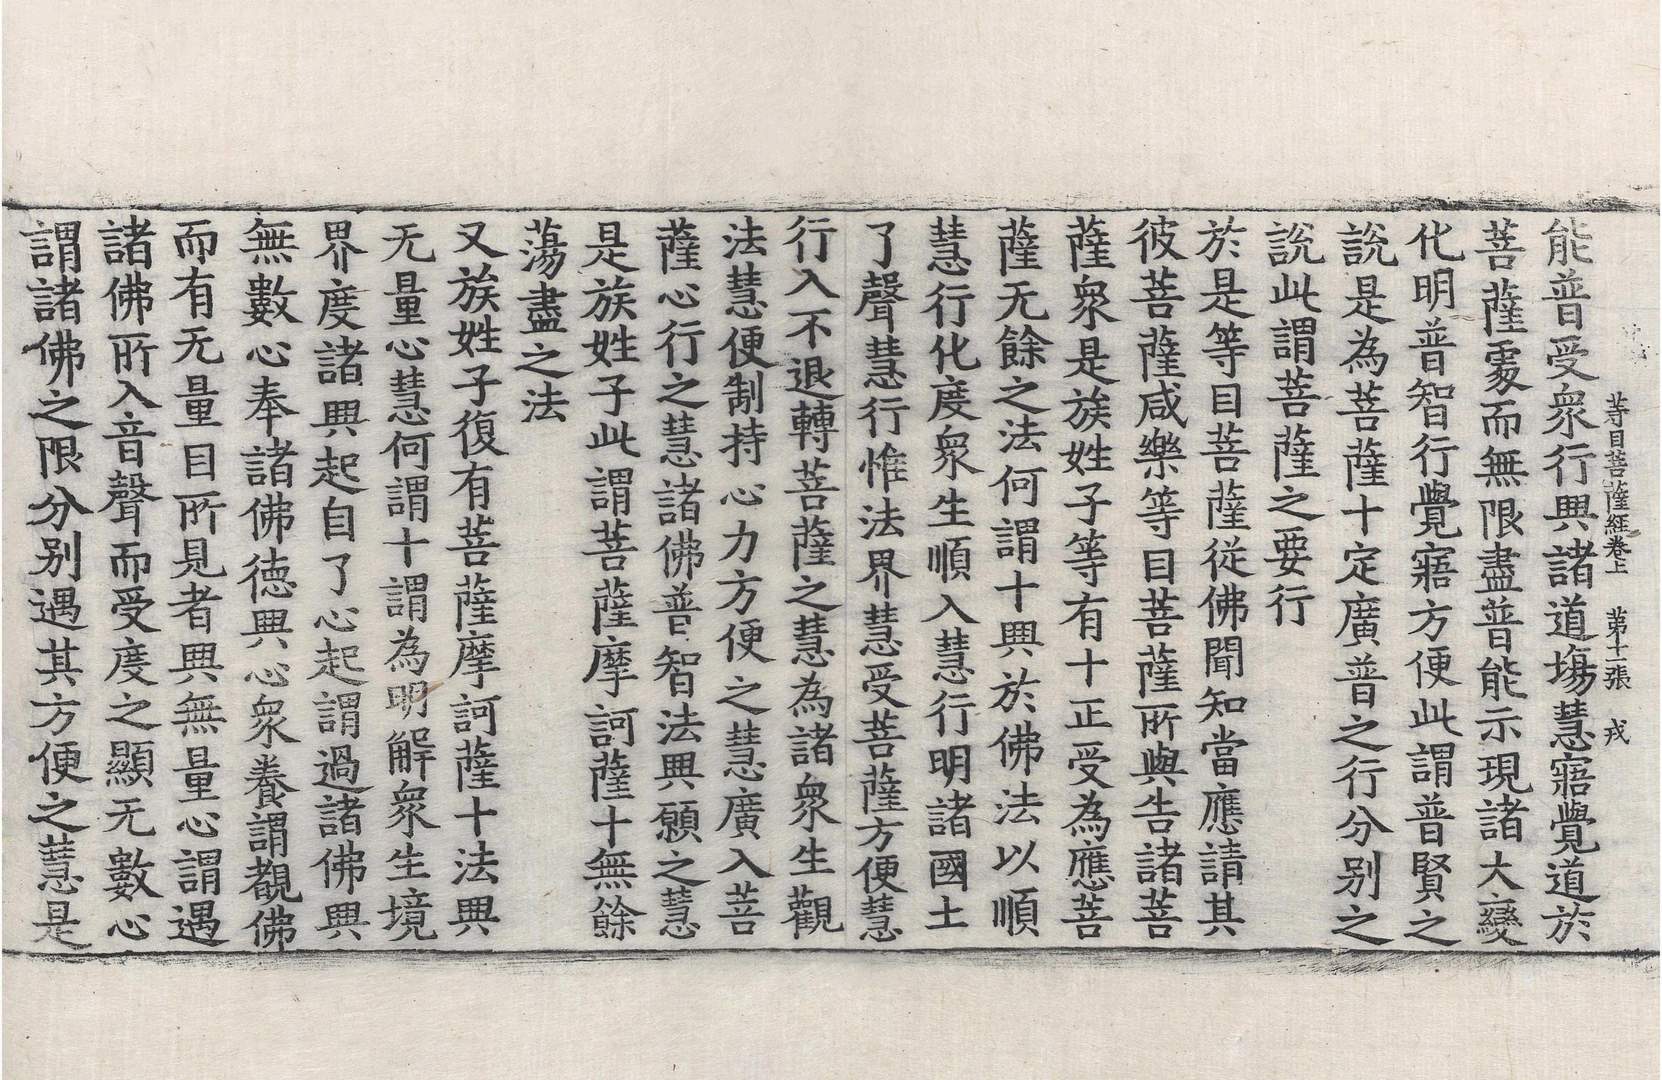 等目菩薩經卷上　第十二張　戎
能普受衆行興諸道場慧寤覺道於
菩薩處而無限盡普能示現諸大變
化明普智行覺寤方便此謂普賢之
說是為菩薩十定廣普之行分别之
說此謂菩薩之要行
於是等目菩薩從佛聞知當應請其
彼菩薩咸樂等目菩薩所與告諸菩
薩衆是族姓子等有十正受為應菩
薩无餘之法何謂十興於佛法以順
慧行化度衆生順入慧行明諸國土
了聲慧行惟法界慧受菩薩方便慧
行入不退轉菩薩之慧為諸衆生觀
法慧便制持心力方便之慧廣入菩
薩心行之慧諸佛普智法興願之慧
是族姓子此謂菩薩摩訶薩十無餘
蕩盡之法
又族姓子復有菩薩摩訶薩十法興
无量心慧何謂十謂為明解衆生境
界度諸興起自了心起謂過諸佛興
無數心奉諸佛德興心衆養謂覩佛
而有无量目所見者興無量心謂遇
諸佛所入音聲而受度之顯无數心
謂諸佛之限分别遇其方便之慧是